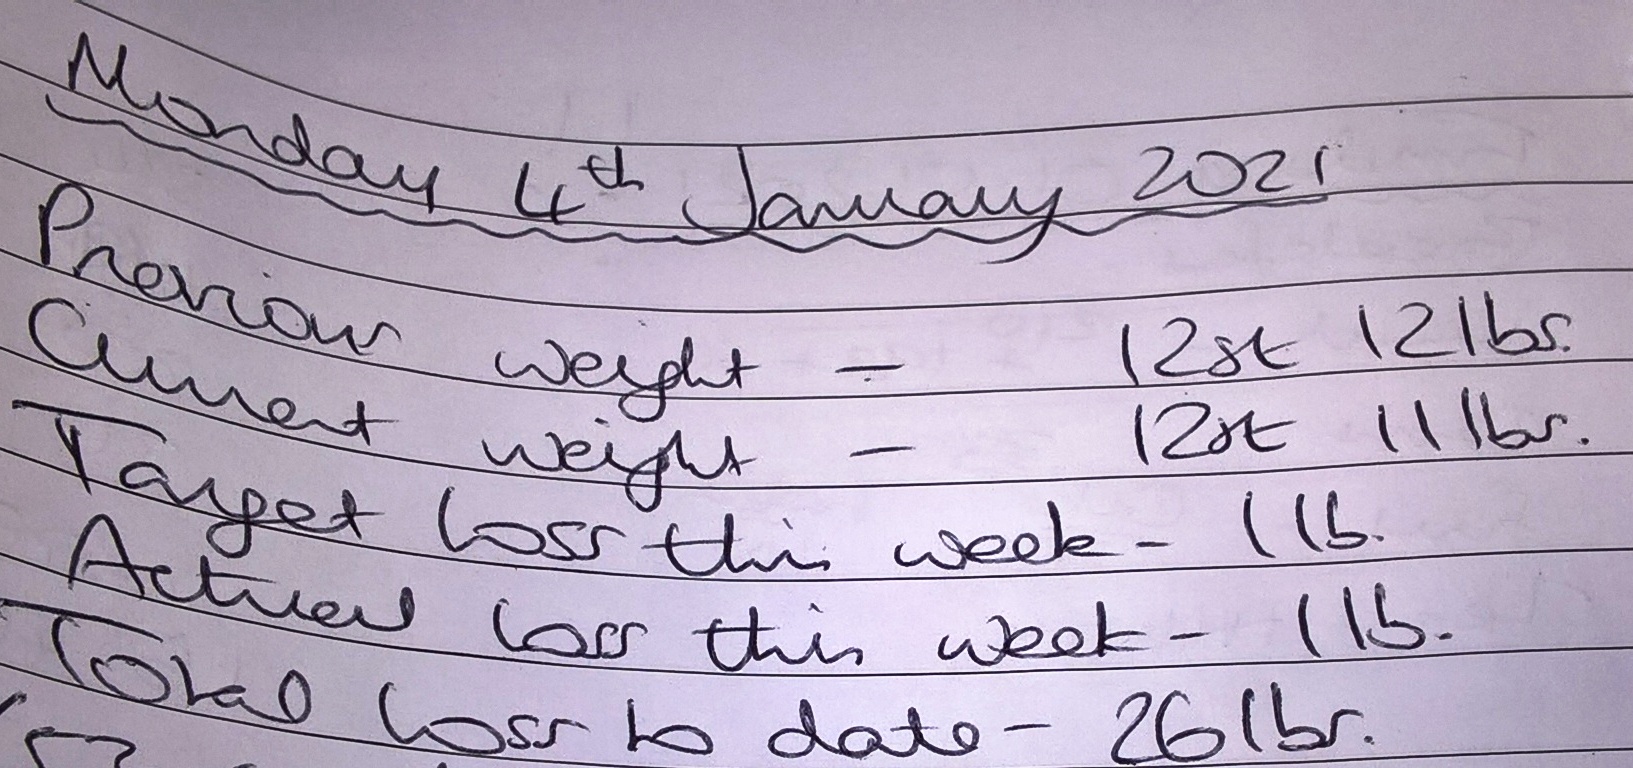 Monday 4th January 2021
Previous weight - 12st 12lbs.
Current weight - 12st 11lbs.
Target loss this week - 1lb.
Actual loss this week - 1lb.
Total loss to date - 26lbs.